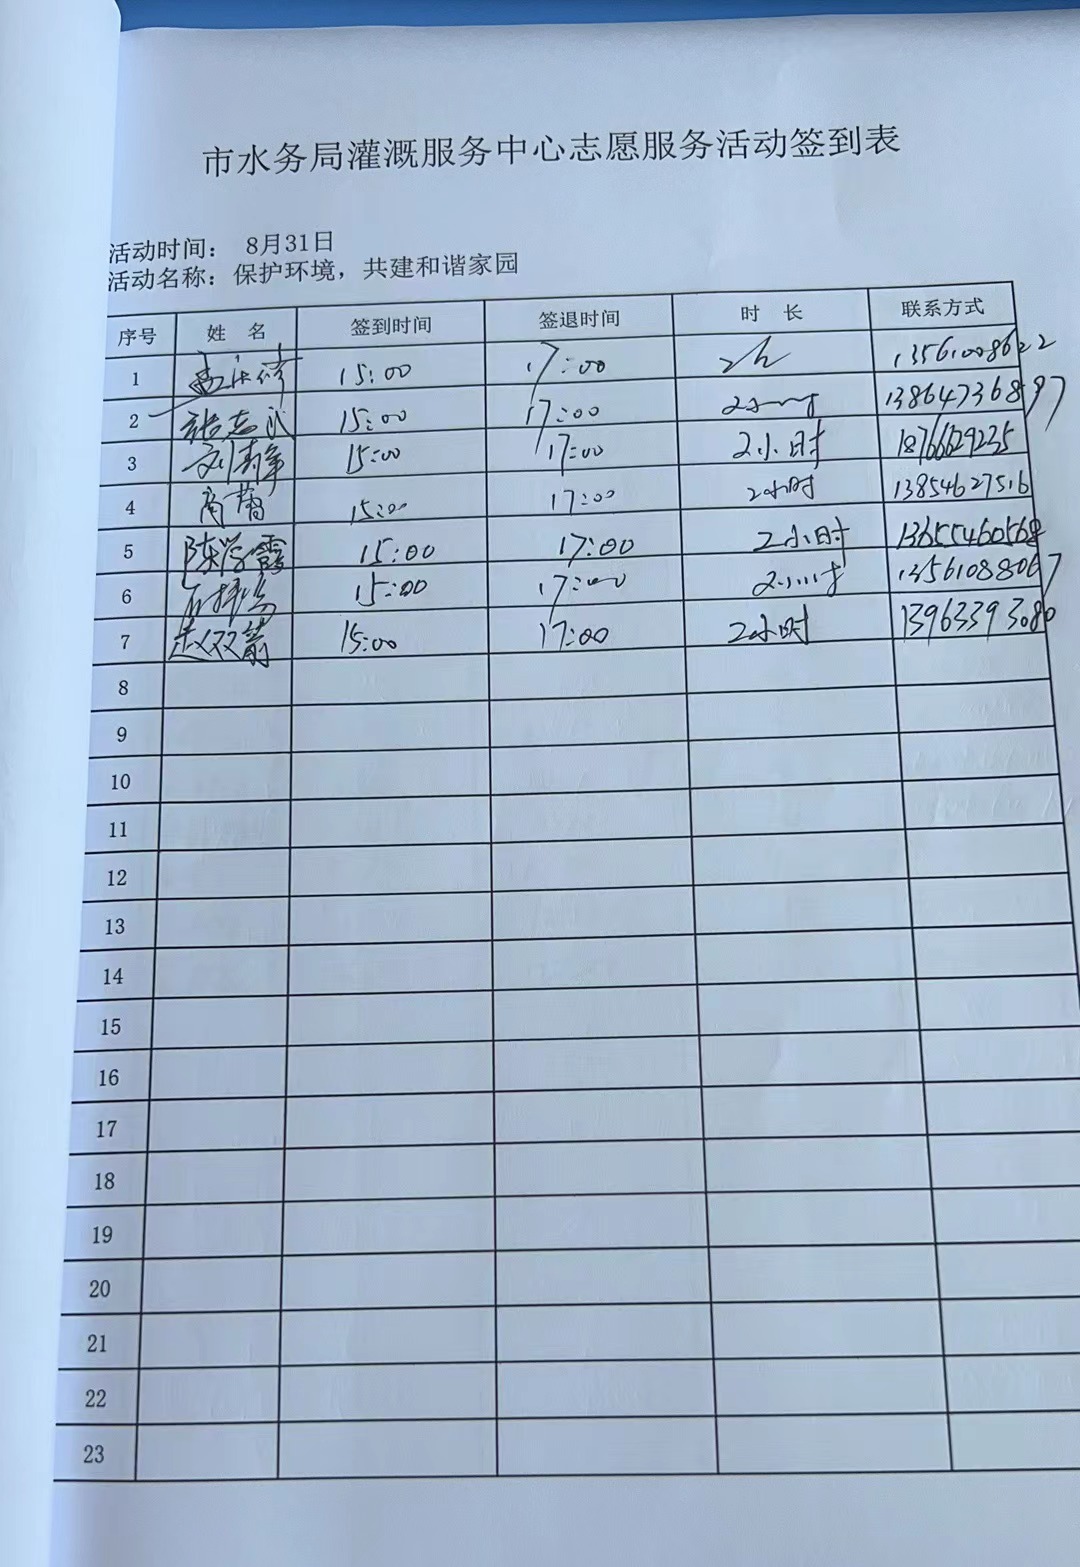 市水务局灌溉服务中心志愿服务活动签到表
活动时间： 8月31日
活动名称：保护环境，共建和谐家园
序号 姓 名 签到时间 签退时间 时 长 联系方式
1 15:00 17:00 2h 13561008622
2 张志武 15:00 17:00 2小时 13864736897
3 刘清军 15:00 17:00 2小时 18766629235
4 商蕾 15:00 17:00 2小时 13854627516
5 陈学霞 15:00 17:00 2小时 13655460568
6 15:00 17:00 2小时 13561088067
7 赵双箭 15:00 17:00 2小时 13963393080
8
9
10
11
12
13
14
15
16
17
18
19
20
21
22
23